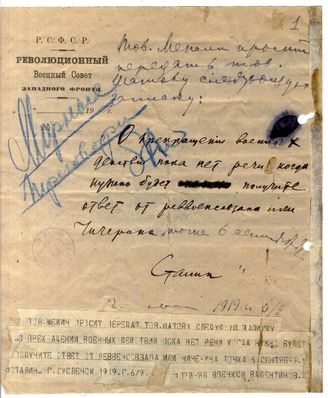 1
Р. С. Ф. С. Р.
РЕВОЛЮЦИОННЫЙ
Военный Совет
ЗАПАДНОГО ФРОНТА
Тов. просит
передать тов.
Шатову следующую
записку:
О прекращение военных
действий пока нет речи когда
нужно будет получите
ответ от реввоенсовзапа или
Чичерина, 6
Сталин
1919 г. 6/9
ТОВ.МЕЖИЧ ПРОСИТ ПЕРЕДАТ ТОВ.ШАТОВУ СЛЕДУЮЩУЮ ЗАПИСКУ
О ПРЕКРАЩЕНИИ ВОЕННЫХ ДЕЙСТВИЙ ПОКА НЕТ РЕЧИ КОГДА НУЖНО БУДЕТ
ПОЛУЧИТЕ ОТВЕТ ОТ РЕВВЕНСОВЗАПА ИЛИ ТОЧКА 6.СЕНТЯБРЯ.
СТАЛИН Г.СМОЛЕНСК 1919.С.6/9.
ВОЕНКОМ ВАЛЕНТИНОВ